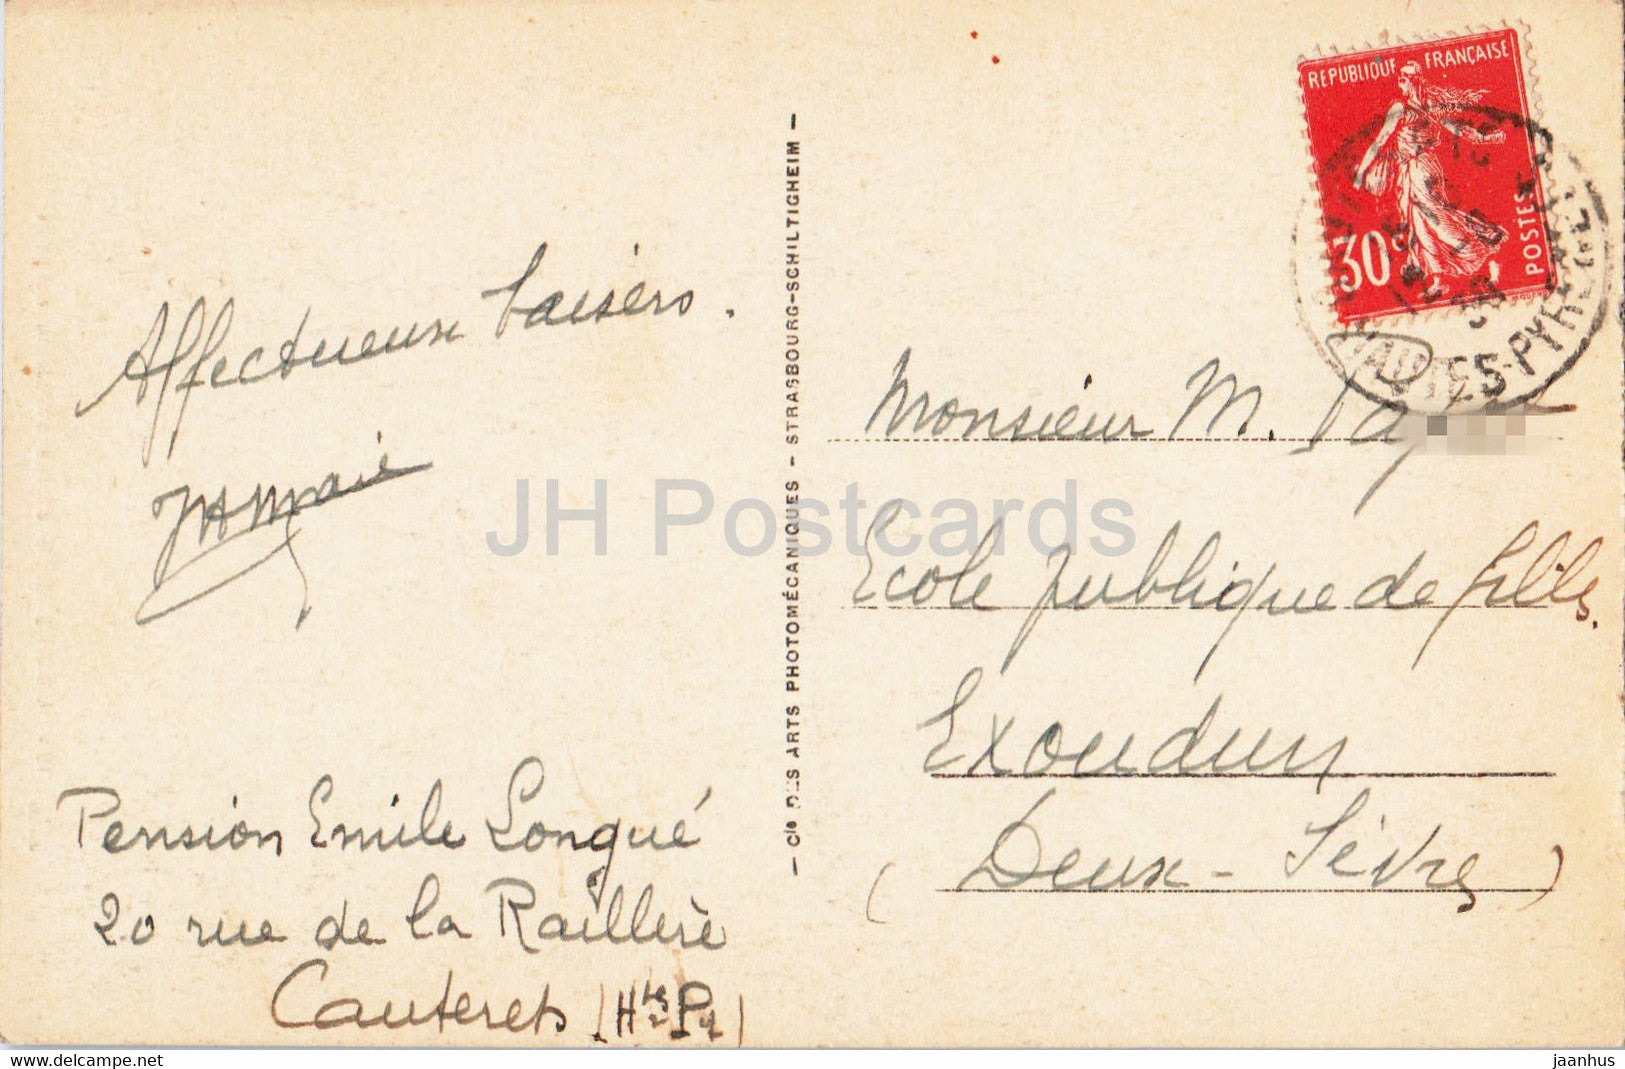 REPUBLIQUE FRANÇAISE
30c
POSTES
HAUTES-PYRENEES
Affectueux baisers.
Monsieur M.
École publique de filles.
Exoudun
(Deux-Sèvres)
Pension Emile Longué
20 rue de la Raillère
Cauterets (Htes Py)
— Cie DES ARTS PHOTOMÉCANIQUES — STRASBOURG-SCHILTIGHEIM —
JH Postcards
www.delcampe.net
jaanhus